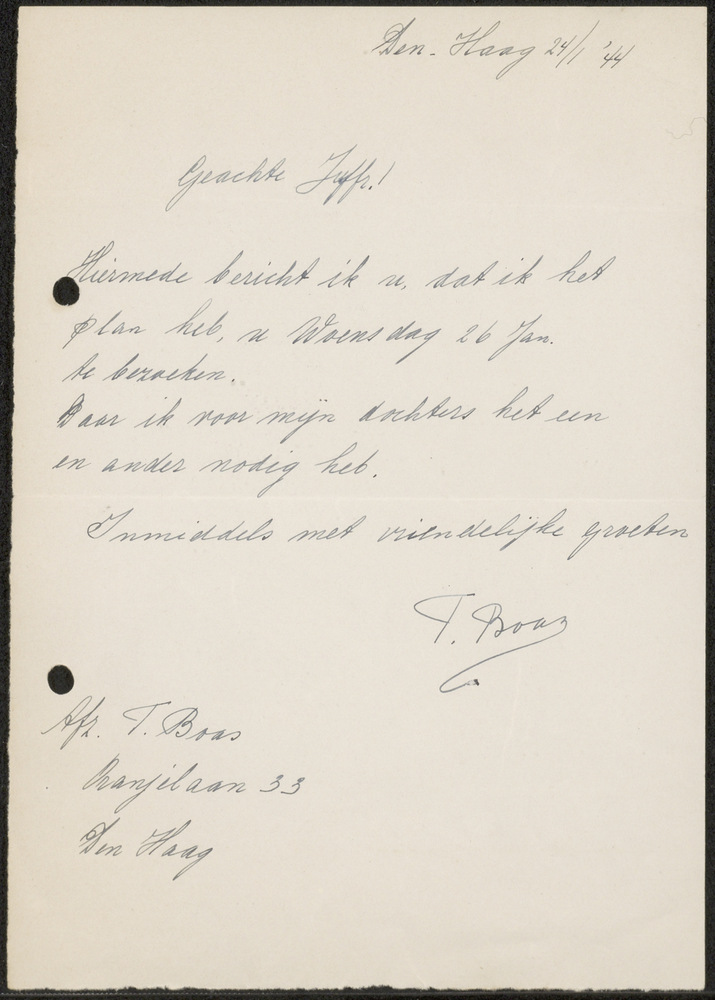 Den-Haag 24/1 '44
Geachte Juffr.!
Hiermede bericht ik u, dat ik het
plan heb, u Woensdag 26 Jan.
te bezoeken.
Daar ik voor mijn dochters het een
en ander nodig heb.
Inmiddels met vriendelijke groeten
T. Boas
Afz. T. Boas
Oranjelaan 33
Den Haag